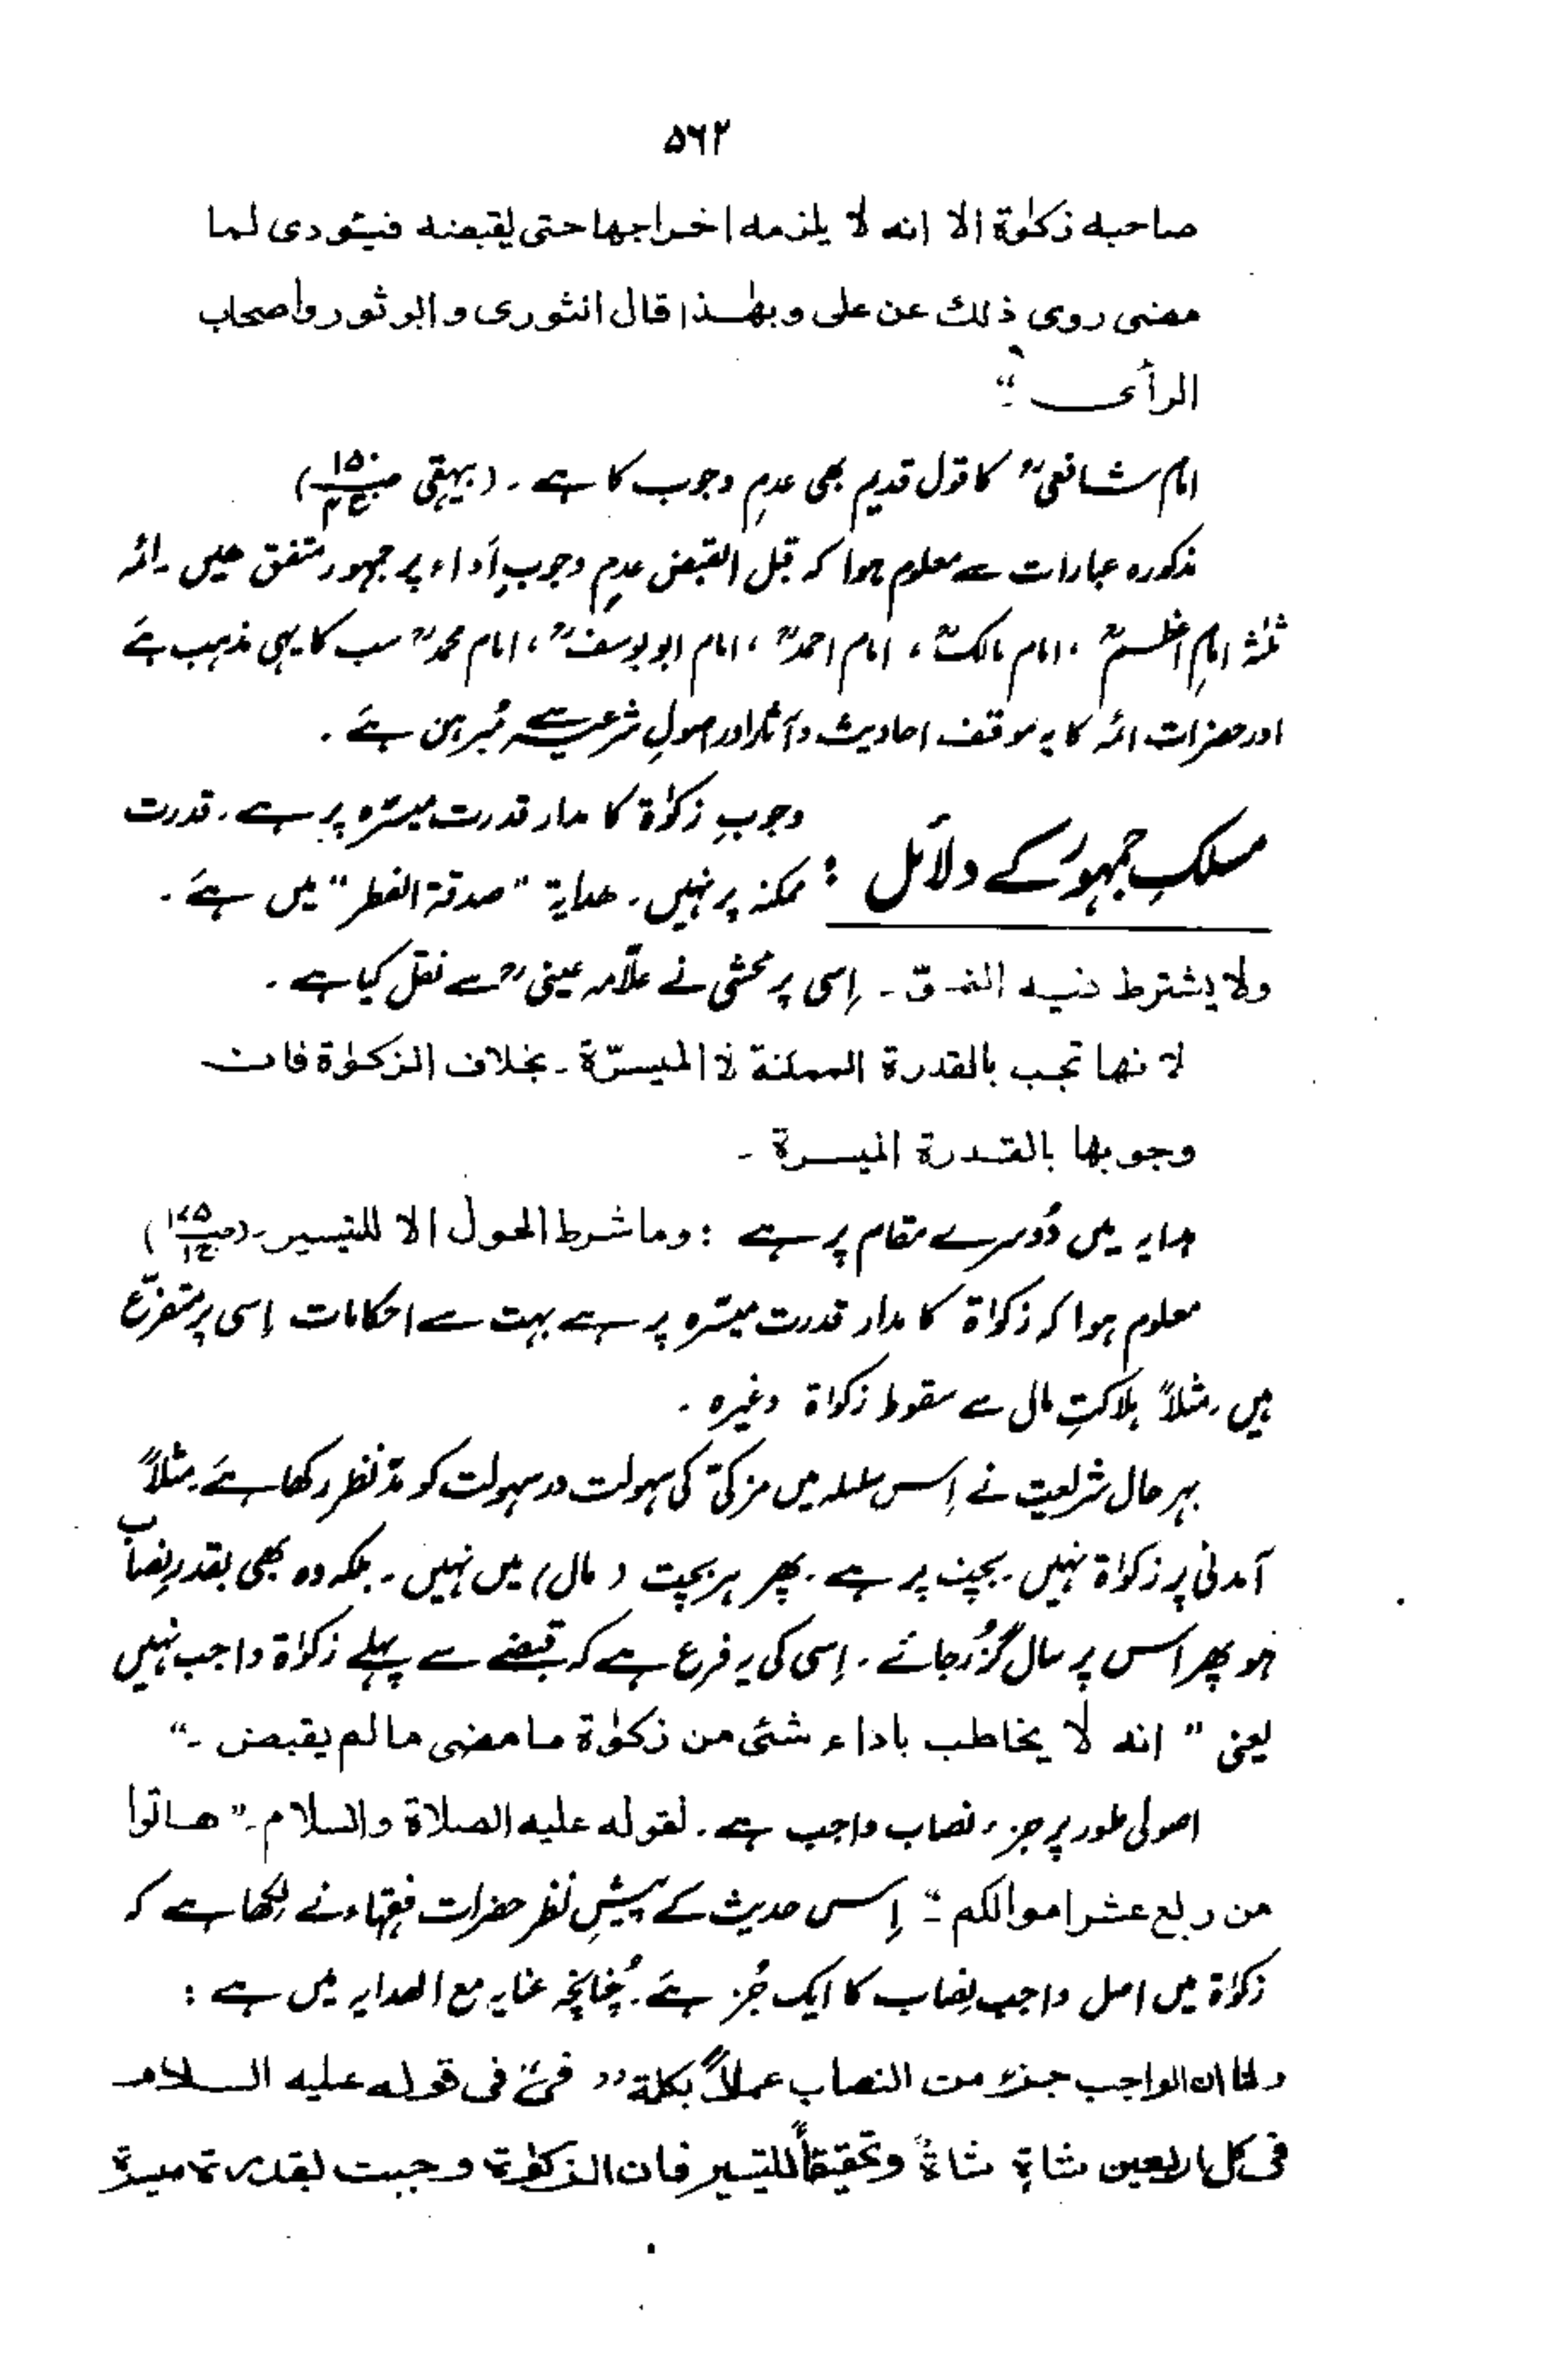 ۵۶۲
صاحبه زکوٰة الا انه لا یلزمه اخراجها حتی یقبضه فیئودی لما
مضی روی ذلك عن علی وبهٰذا قال الثوری و ابو ثور واصحاب
الرأی ۔"
امام شافعیؒ کا قول قدیم بھی عدمِ وجوب کا ہے ۔ (بیہقی ص۱۵۰ ج۴)
مذکورہ عبارات سے معلوم ہوا کہ قبل القبض عدمِ وجوبِ اَداء پر جمہور متفق ھیں ۔ ائمہ
ثلٰثہ امامِ اعظمؒ ، امام مالکؒ ، امام احمدؒ ، امام ابویوسفؒ ، امام محمدؒ سب کا یہی مذہب ہے
اور حضرات ائمہ کا یہ موقف احادیث و آثار اور اصولِ شرعیہ سے مُبرہن ہے ۔
مسلکِ جمہور کے دلائل : وجوبِ زکوٰة کا مدار قدرت میسّرہ پر ہے ۔ قدرت
ممکنہ پر نہیں ۔ ھدایة "صدقة الفطر" میں ہے ۔
ولا یشترط فیه النمو ۔ اِسی پر محشی نے علّامہ عینیؒ سے نقل کیا ہے ۔
لانها تجب بالقدرة الممکنة لا المیسّرة ۔ بخلاف الزکوٰة فان
وجوبها بالقدرة المیسرة ۔
ہدایہ میں دُوسرے مقام پر ہے : وما شرط الحول الا للتیسیر ۔ (ص۱۷۵ ج۱)
معلوم ہوا کہ زکواة کا مدار قدرت میسّرہ پر ہے بہت سے احکامات اِسی پر متفرّع
ہیں ۔ مثلاً ہلاکتِ مال سے سقوط زکواة وغیرہ ۔
بہر حال شریعت نے اِس سلسلہ میں مزکّی کی سہولت در سہولت کو مدّنظر رکھا ہے ۔ مثلاً
آمدنی پر زکواة نہیں ۔ بچت پر ہے ۔ پھر ہر بچت (مال) میں نہیں ۔ بلکہ وہ بھی بقدرِ نصاب
ہو پھر اس پر سال گزُر جائے ۔ اِسی کی یہ فرع ہے کہ قبضے سے پہلے زکوٰة واجب نہیں
یعنی " انه لا یخاطب باداء شئی من زکوٰة ما مضی مالم یقبض ۔"
اصولی طور پر جزء نصاب واجب ہے ۔ لقوله علیه الصلاة والسلام ۔" هاتوا
من ربع عشر اموالکم ۔" اِس حدیث کے پیشِ نظر حضرات فقہاء نے لکھا ہے کہ
زکوٰة میں اصل واجب نصاب کا ایک جُز ہے ۔ چُنانچہ عنایہ مع الھدایہ میں ہے :
ولنا ان الواجب جزء من النصاب عملاً بکلمة " فی" فی قوله علیه السلام
فی کل اربعین شاةٍ شاةٌ وتحقیقاً للتیسیر فان الزکوٰة وجبت بقدرة میسرة